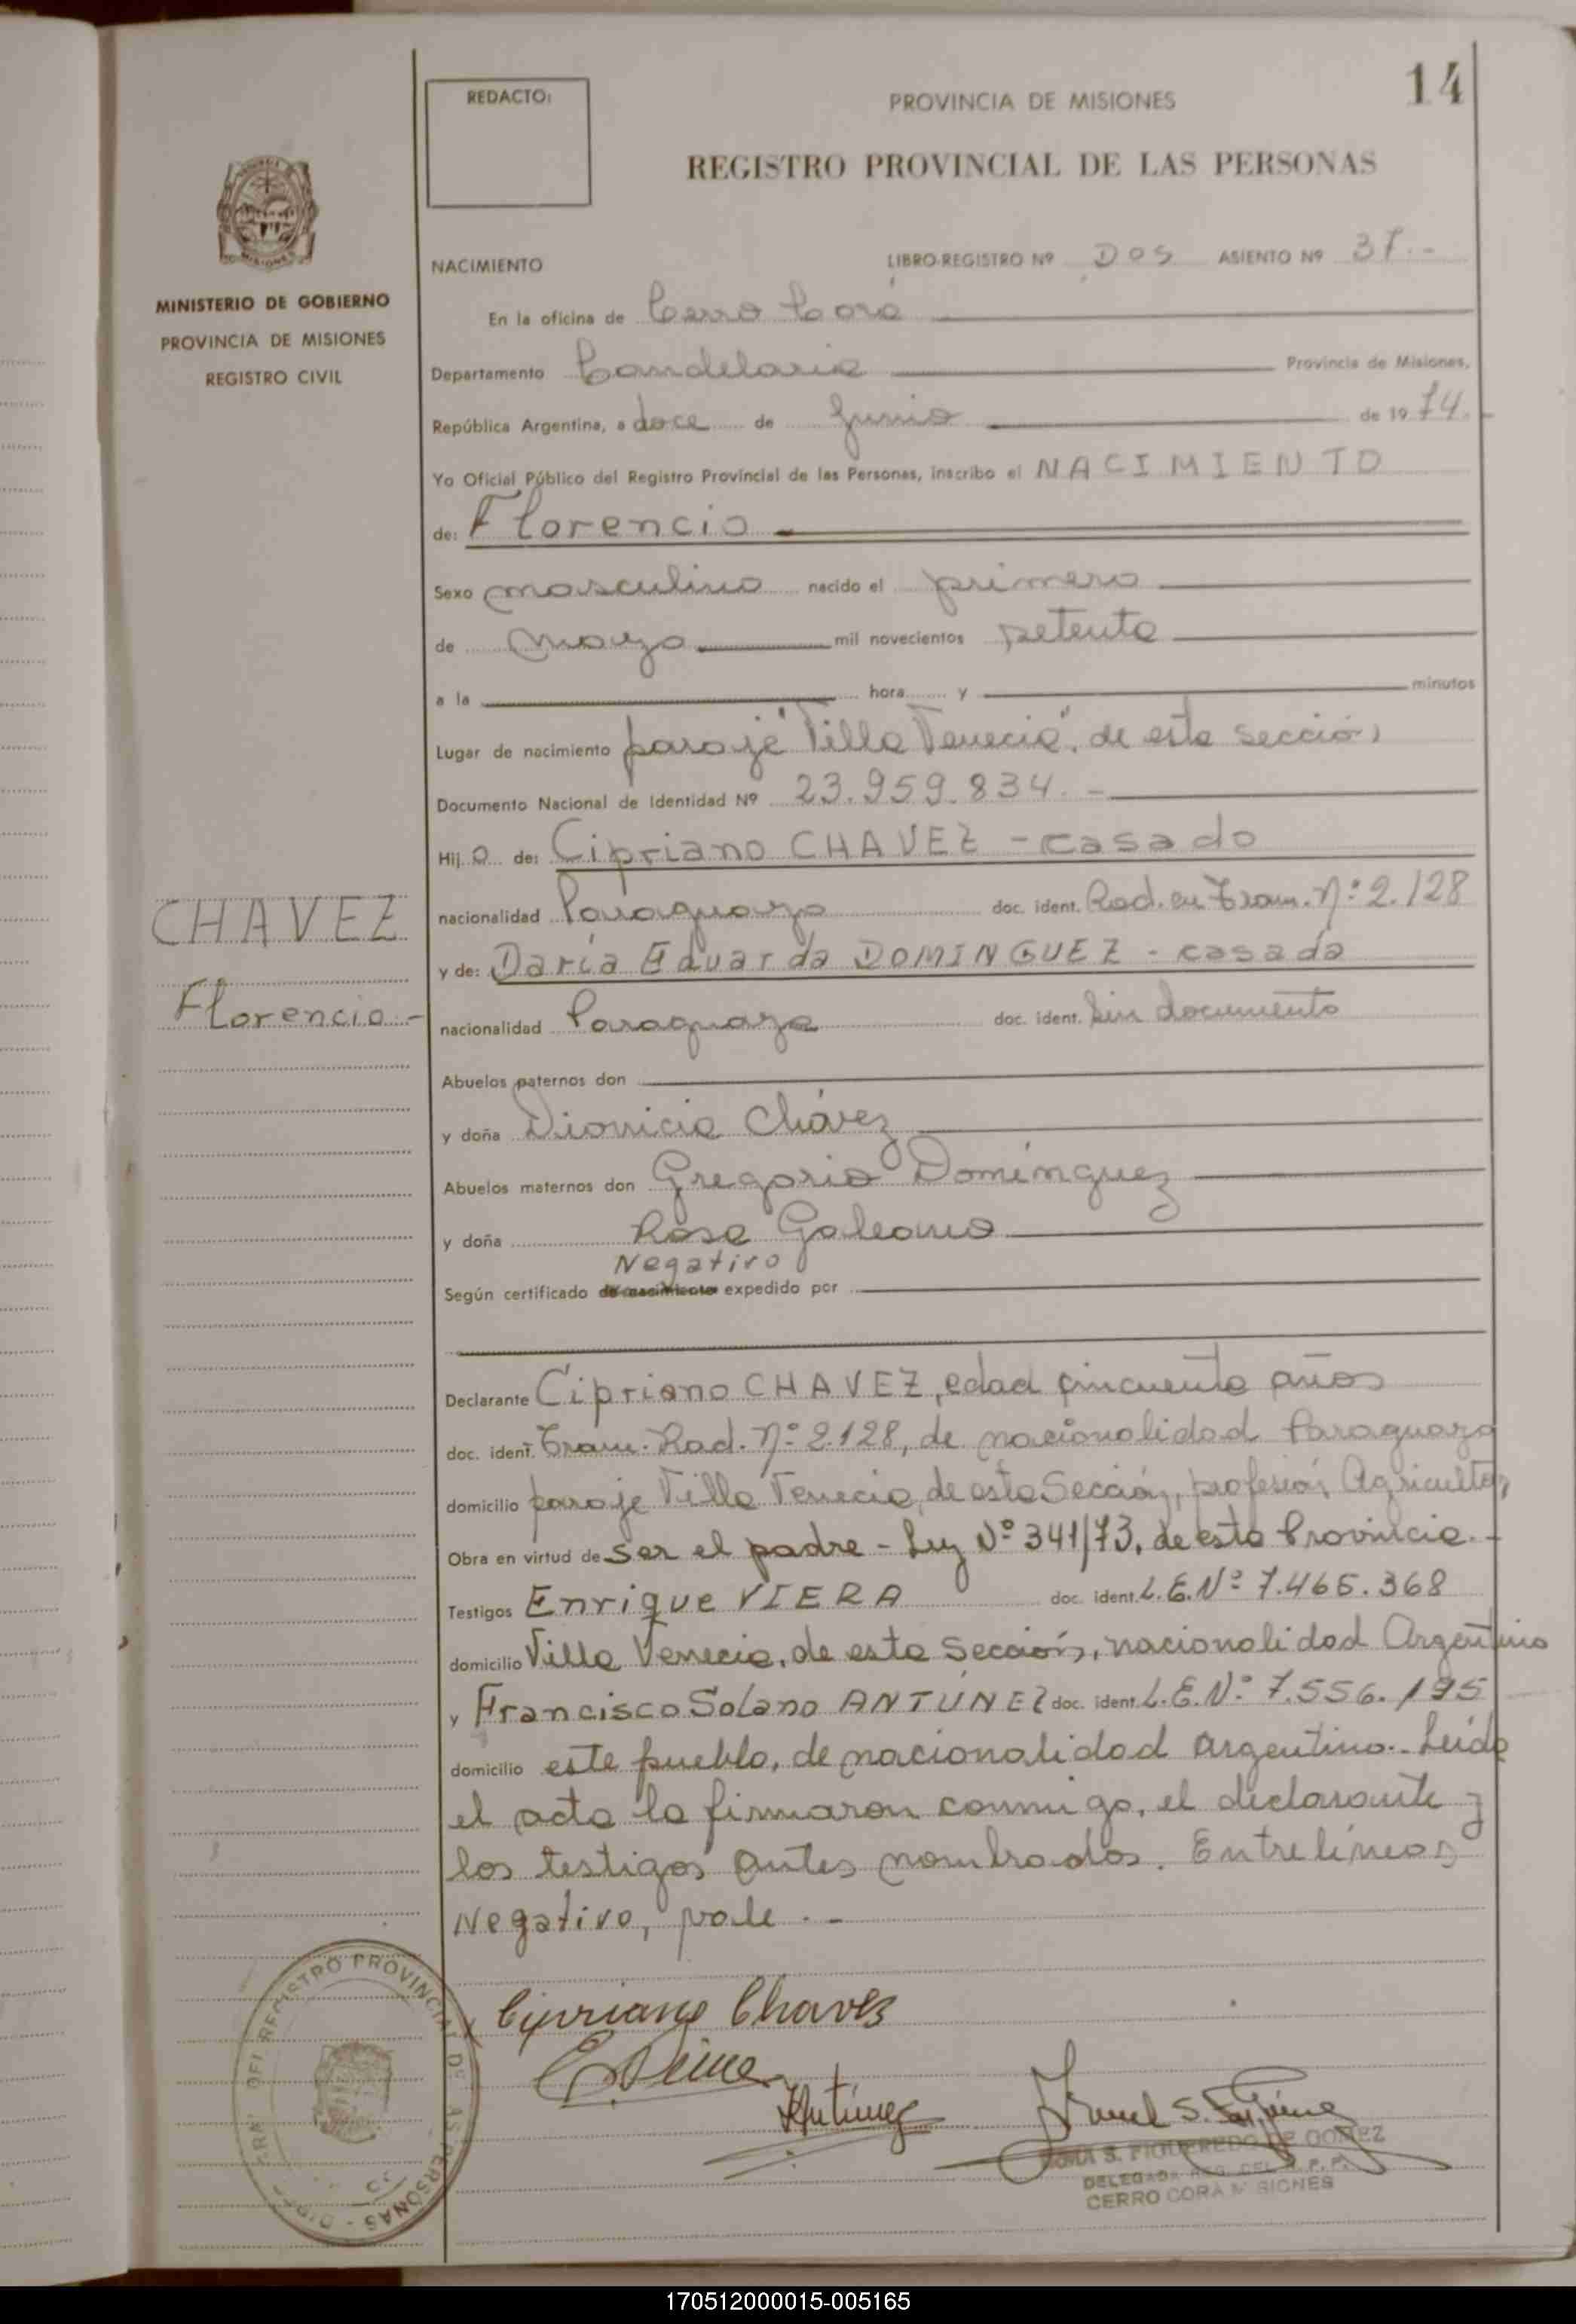 14
REDACTO:
PROVINCIA DE MISIONES
REGISTRO PROVINCIAL DE LAS PERSONAS
MINISTERIO DE GOBIERNO
PROVINCIA DE MISIONES
REGISTRO CIVIL
NACIMIENTO LIBRO-REGISTRO Nº DOS ASIENTO Nº 37.-
En la oficina de Cerro Corá
Departamento Candelaria Provincia de Misiones,
República Argentina, a doce de Junio de 1974.-
Yo Oficial Público del Registro Provincial de las Personas, inscribo el NACIMIENTO
de: Florencio
Sexo masculino nacido el primero
de mayo mil novecientos setenta
a la hora y minutos
Lugar de nacimiento paraje "Villa Venecia", de esta sección
Documento Nacional de Identidad Nº 23.959.834.-
Hijo de: Cipriano CHAVEZ - casado
nacionalidad Paraguayo doc. ident. Rad. en Tram. Nº: 2.128
CHAVEZ
y de: Daría Eduarda DOMINGUEZ - casada
Florencio.-
nacionalidad Paraguaya doc. ident. Sin documento
Abuelos paternos don
y doña Dionicia Chávez
Abuelos maternos don Gregorio Domínguez
y doña Rosa Galeano
Negativo
Según certificado de nacimiento expedido por
Declarante Cipriano CHAVEZ, edad cincuenta años
doc. ident. Tram. Rad. Nº: 2.128, de nacionalidad Paraguaya
domicilio paraje Villa Venecia, de esta Sección, profesión Agricultor,
Obra en virtud de ser el padre - Ley Nº 341/73, de esta Provincia.-
Testigos Enrique VIERA doc. ident. L.E.Nº: 7.465.368
domicilio Villa Venecia, de esta sección, nacionalidad Argentino
y Francisco Solano ANTÚNEZ doc. ident. L.E.Nº: 7.556.195
domicilio este pueblo, de nacionalidad argentino.- Leída
el acta la firmaron conmigo, el declarante y
los testigos antes nombrados. Entrelíneas
Negativo, vale.-
Cipriano Chavez
EViera
Antúnez
S. FIGUEREDO DE GOMEZ
DELEGADA REG. DEL R.P.P.
CERRO CORA MISIONES
REGISTRO PROVINCIAL DE LAS PERSONAS
170512000015-005165